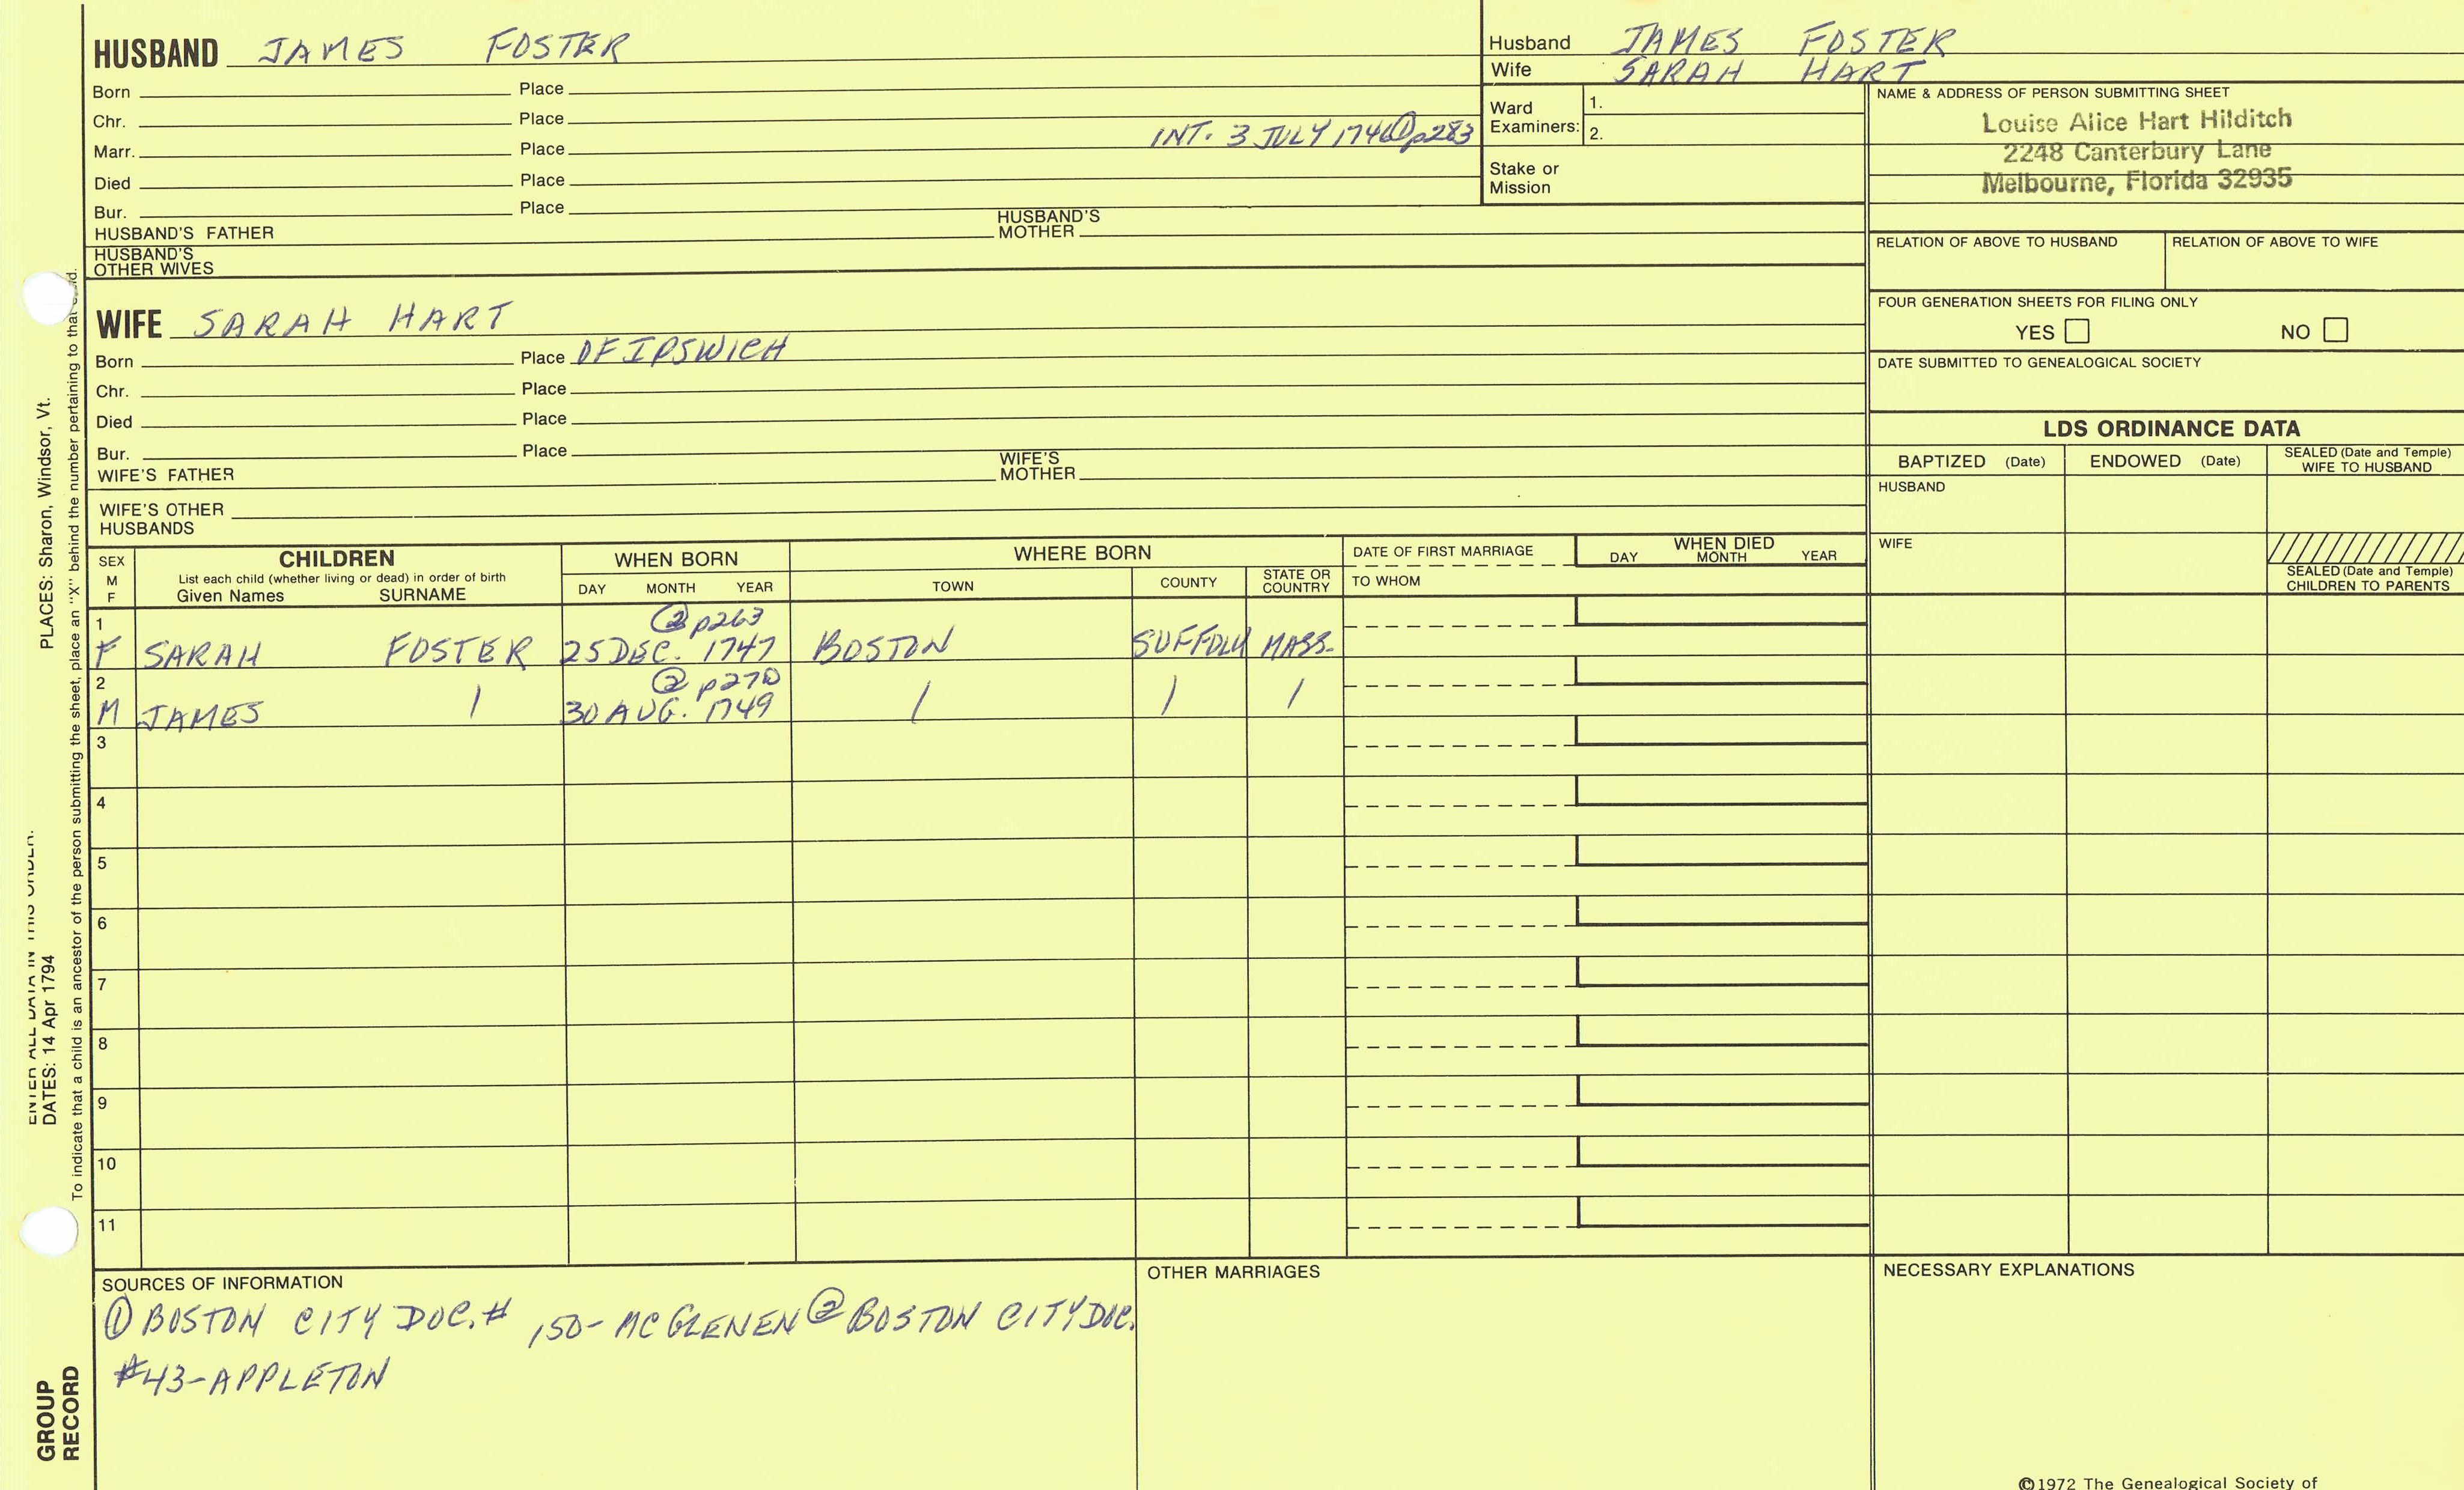 HUSBAND JAMES FOSTER
Born Place
Chr. Place
Marr. Place INT. 3 JULY 1746 ① p283
Died Place
Bur. Place
HUSBAND'S FATHER HUSBAND'S MOTHER
HUSBAND'S OTHER WIVES
Husband JAMES FOSTER
Wife SARAH HART
Ward Examiners: 1.
2.
Stake or Mission
NAME & ADDRESS OF PERSON SUBMITTING SHEET
Louise Alice Hart Hilditch
2248 Canterbury Lane
Melbourne, Florida 32935
RELATION OF ABOVE TO HUSBAND RELATION OF ABOVE TO WIFE
FOUR GENERATION SHEETS FOR FILING ONLY
YES NO
DATE SUBMITTED TO GENEALOGICAL SOCIETY
WIFE SARAH HART
Born Place OF IPSWICH
Chr. Place
Died Place
Bur. Place
WIFE'S FATHER WIFE'S MOTHER
WIFE'S OTHER HUSBANDS
LDS ORDINANCE DATA
BAPTIZED (Date) ENDOWED (Date) SEALED (Date and Temple) WIFE TO HUSBAND
HUSBAND
WIFE
SEALED (Date and Temple) CHILDREN TO PARENTS
SEX M F
CHILDREN
List each child (whether living or dead) in order of birth
Given Names SURNAME
WHEN BORN
DAY MONTH YEAR
WHERE BORN
TOWN COUNTY STATE OR COUNTRY
DATE OF FIRST MARRIAGE
TO WHOM
WHEN DIED
DAY MONTH YEAR
1 ② p263
F SARAH FOSTER 25 DEC. 1747 BOSTON SUFFOLK MASS.
2 ② p270
M JAMES / 30 AUG. 1749 / / /
3
4
5
6
7
8
9
10
11
SOURCES OF INFORMATION
① BOSTON CITY DOC. # 150- MCGLENEN ② BOSTON CITY DOC.
#43-APPLETON
OTHER MARRIAGES
NECESSARY EXPLANATIONS
©1972 The Genealogical Society of
ENTER ALL DATA IN THIS ORDER:
DATES: 14 Apr 1794 PLACES: Sharon, Windsor, Vt.
To indicate that a child is an ancestor of the person submitting the sheet, place an "X" behind the number pertaining to that child.
GROUP
RECORD